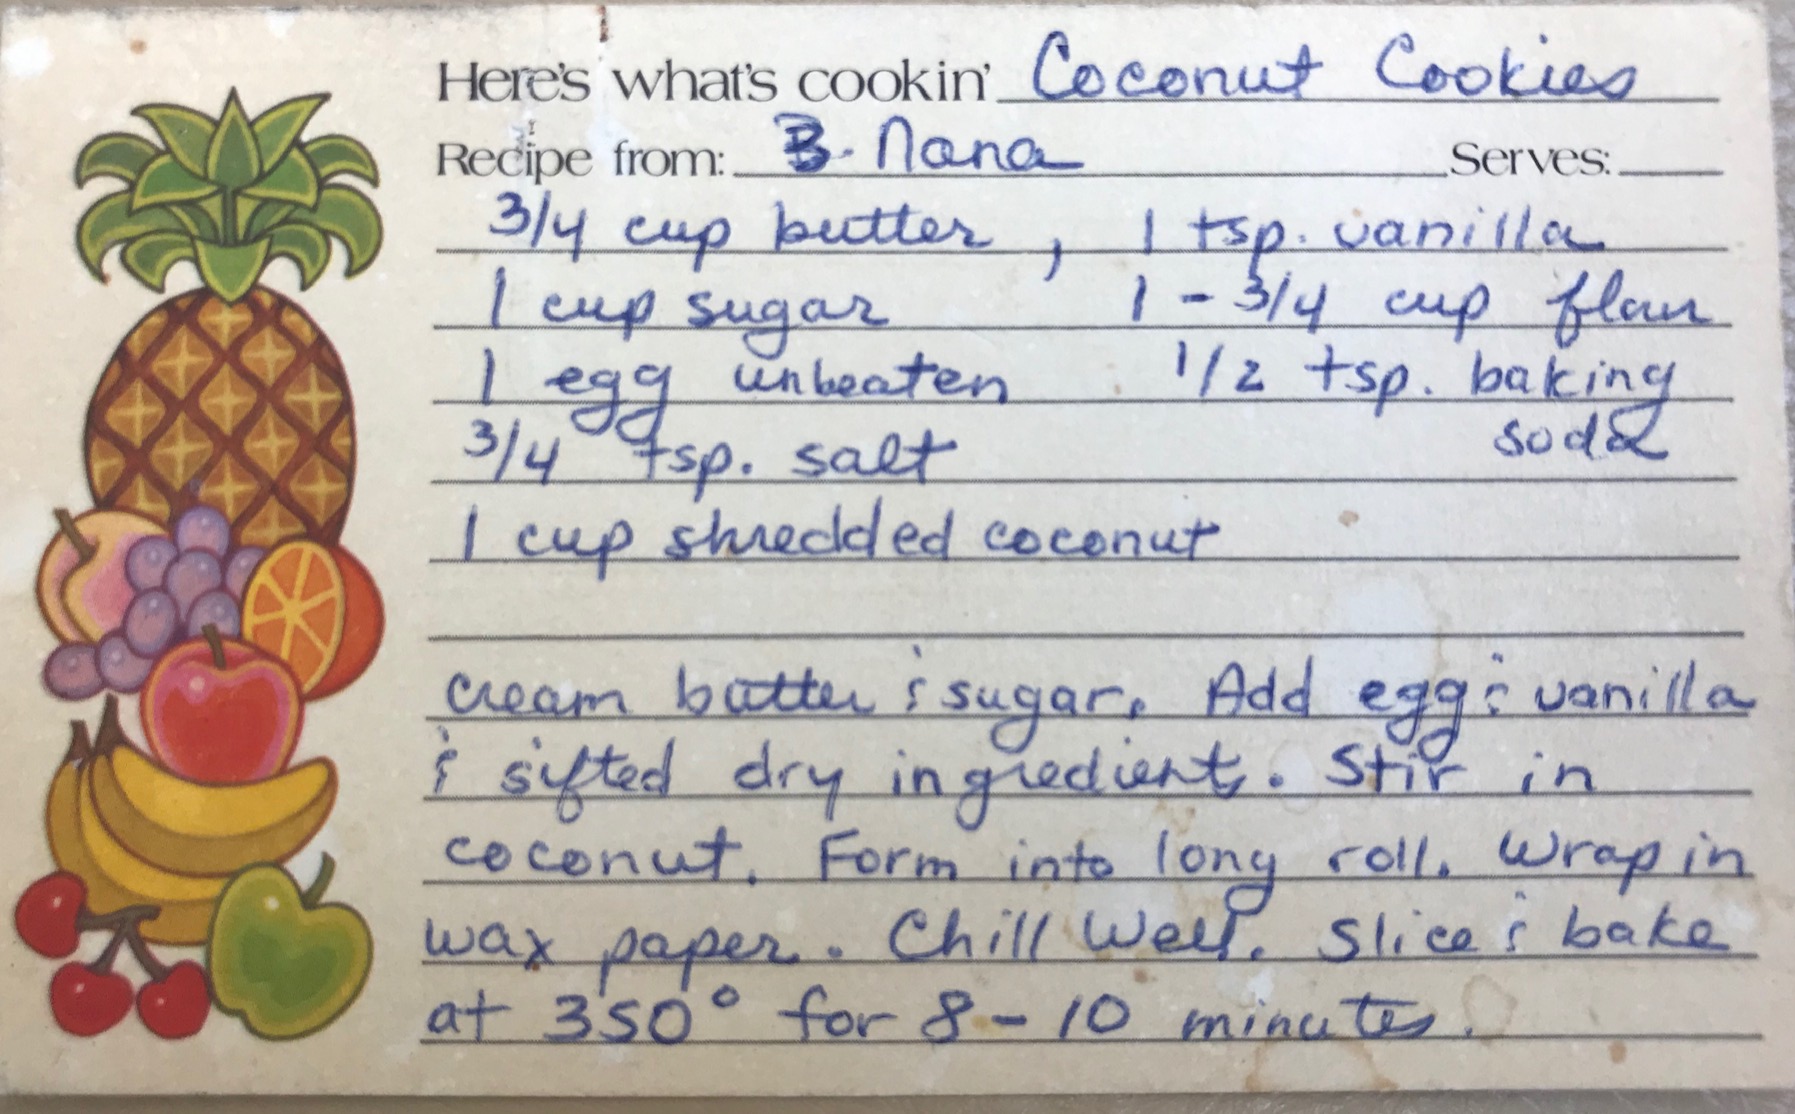 Here's what's cookin' Coconut Cookies
Recipe from: B. Nana Serves:
3/4 cup butter, 1 tsp. vanilla
1 cup sugar 1 - 3/4 cup flour
1 egg unbeaten 1/2 tsp. baking
3/4 tsp. salt soda
1 cup shredded coconut
cream butter & sugar. Add egg & vanilla
& sifted dry ingredients. Stir in
coconut. Form into long roll. Wrap in
wax paper. Chill Well. Slice & bake
at 350° for 8-10 minutes.